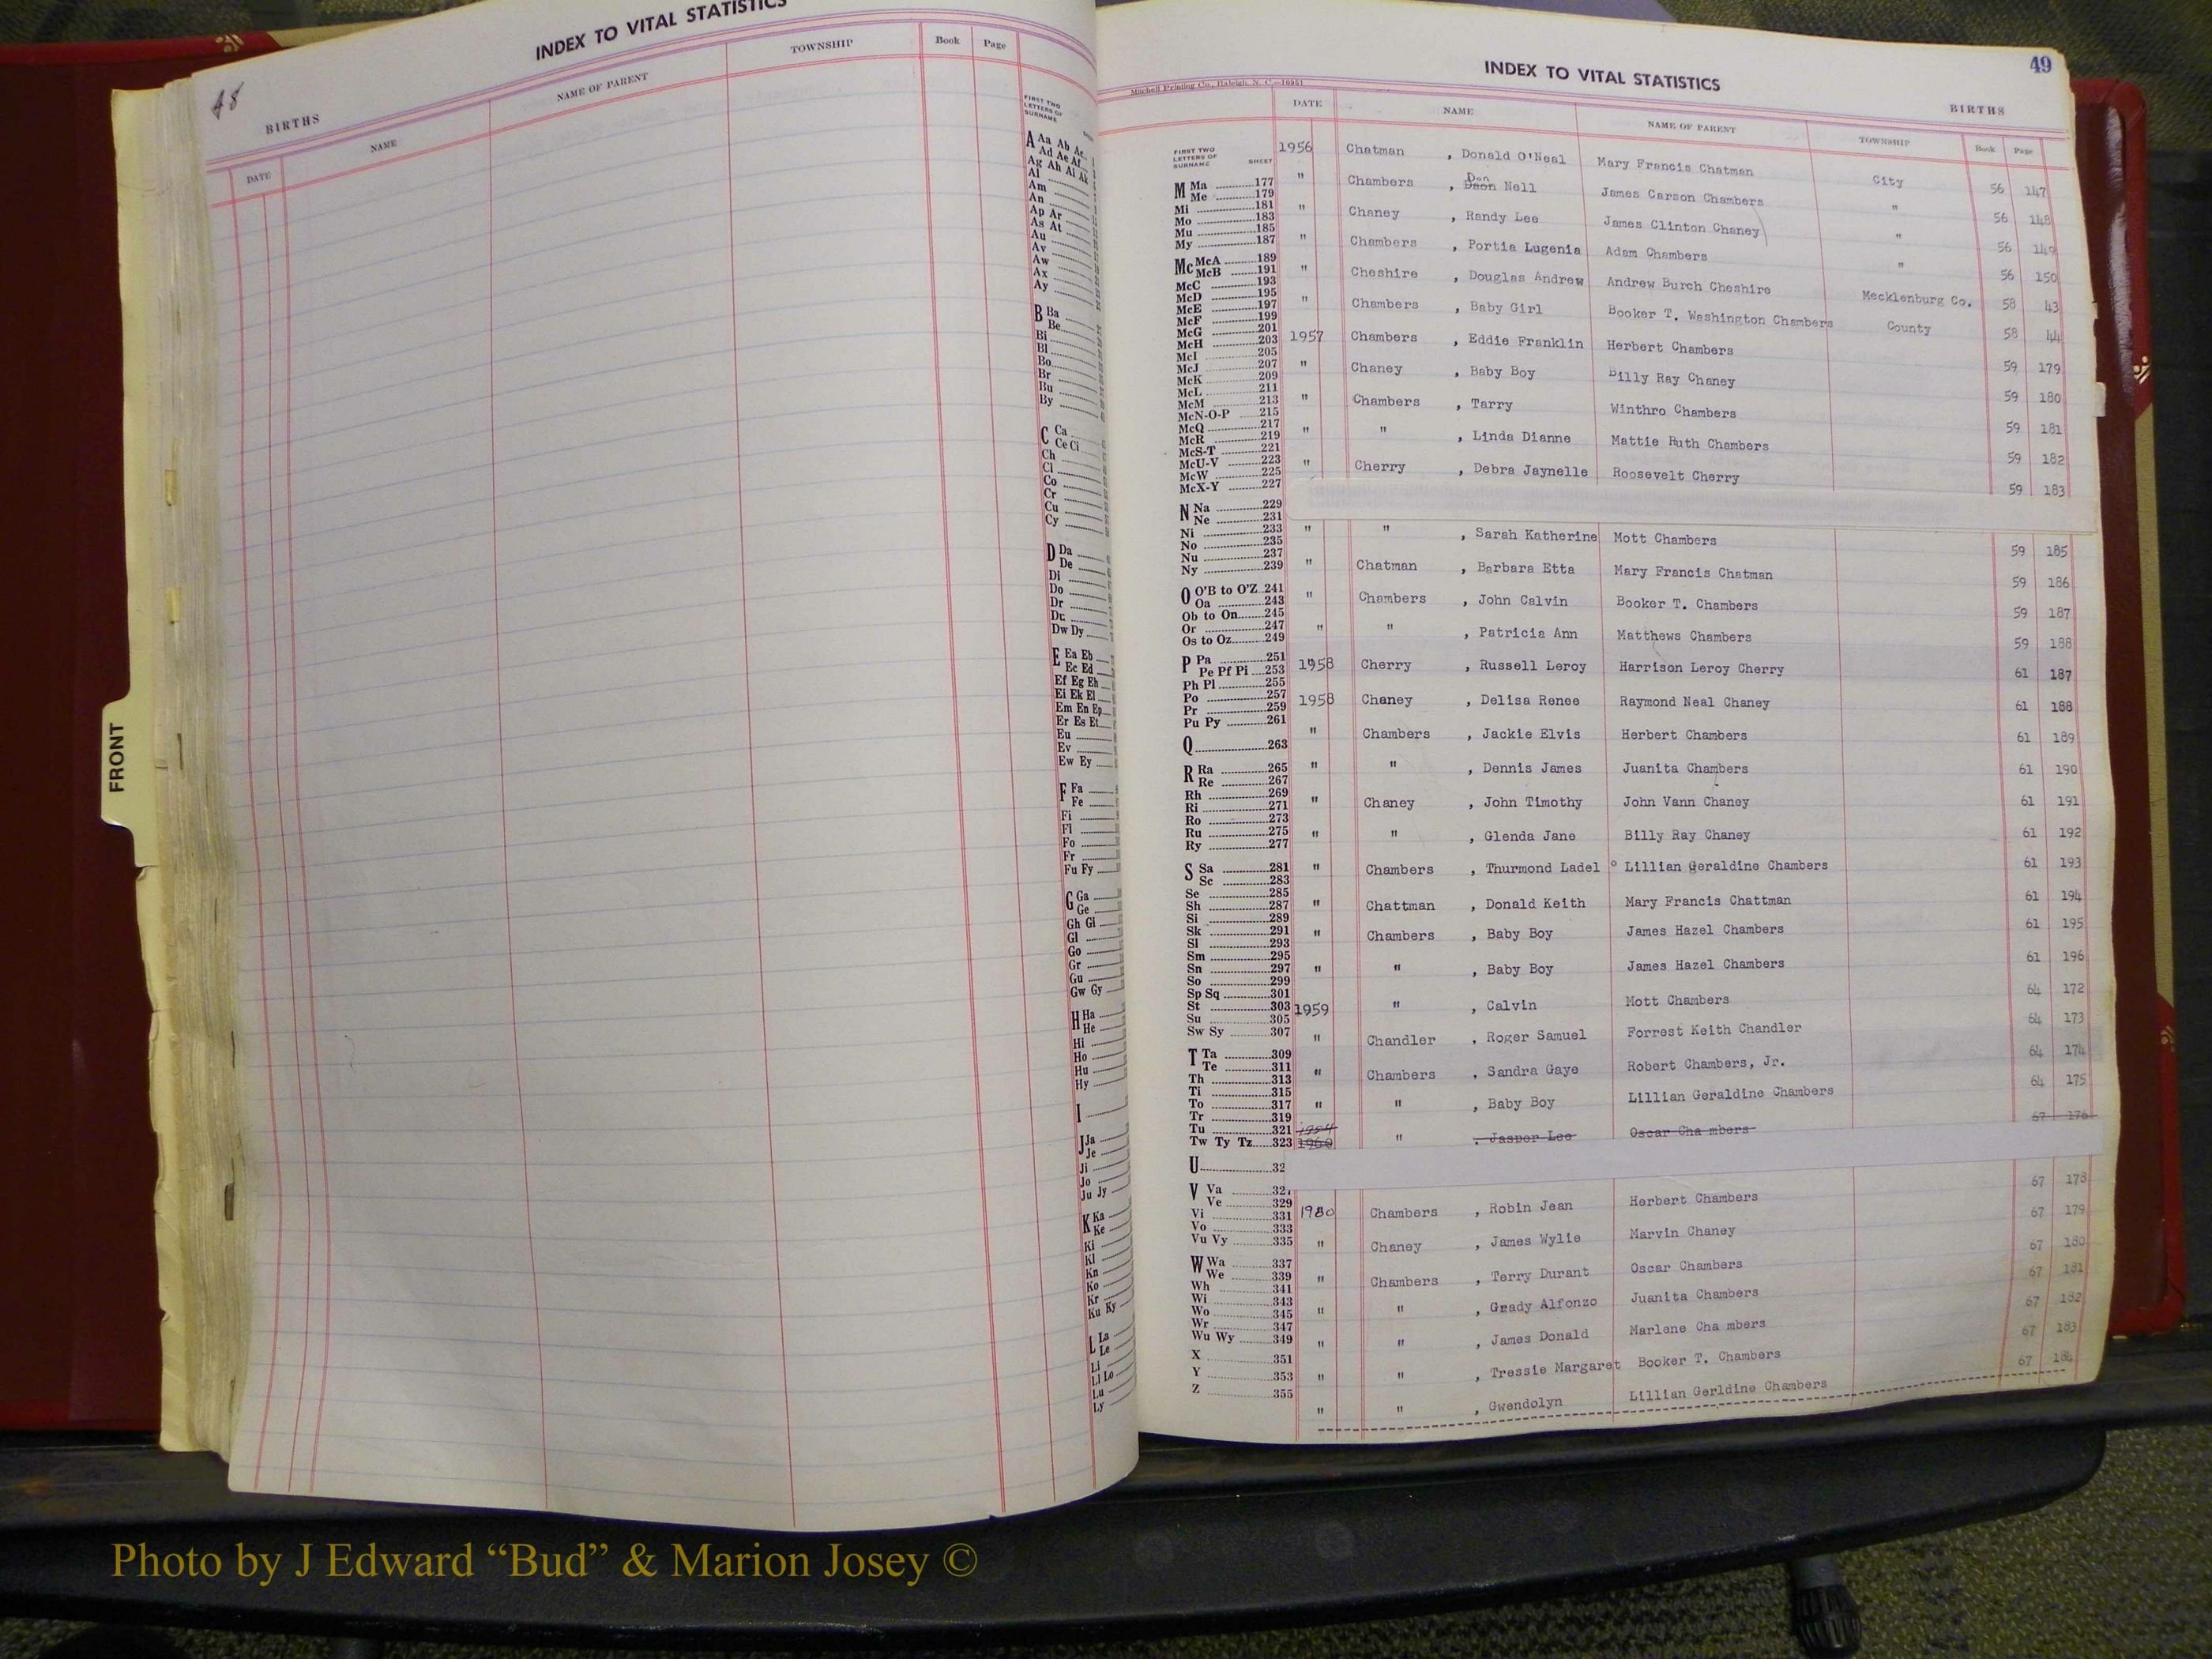 INDEX TO VITAL STATISTICS
48
BIRTHS
DATE NAME NAME OF PARENT TOWNSHIP Book Page
FIRST TWO
LETTERS OF
SURNAME
A Aa Ab Ac
Ad Ae Af
Ag Ah Ai Ak
Al
Am
An
Ap Ar
As At
Au
Av
Aw
Ax
Ay
B Ba
Be
Bi
Bl
Bo
Br
Bu
By
C Ca
Ce Ci
Ch
Cl
Co
Cr
Cu
Cy
D Da
De
Di
Do
Dr
Du
Dw Dy
E Ea Eb
Ec Ed
Ef Eg Eh
Ei Ek El
Em En Ep
Er Es Et
Eu
Ev
Ew Ey
F Fa
Fe
Fi
Fl
Fo
Fr
Fu Fy
G Ga
Ge
Gh Gi
Gl
Go
Gr
Gu
Gw Gy
H Ha
He
Hi
Ho
Hu
Hy
I
J Ja
Je
Ji
Jo
Ju Jy
K Ka
Ke
Ki
Kl
Kn
Ko
Kr
Ku Ky
L La
Le
Li
Ll Lo
Lu
Ly
FRONT
49
INDEX TO VITAL STATISTICS
Mitchell Printing Co., Raleigh, N. C.—10951
BIRTHS
DATE NAME NAME OF PARENT TOWNSHIP Book Page
FIRST TWO
LETTERS OF
SURNAME SHEET
M Ma 177
Me 179
Mi 181
Mo 183
Mu 185
My 187
Mc McA 189
McB 191
McC 193
McD 195
McE 197
McF 199
McG 201
McH 203
McI 205
McJ 207
McK 209
McL 211
McM 213
McN-O-P 215
McQ 217
McR 219
McS-T 221
McU-V 223
McW 225
McX-Y 227
N Na 229
Ne 231
Ni 233
No 235
Nu 237
Ny 239
O O'B to O'Z 241
Oa 243
Ob to On 245
Or 247
Os to Oz 249
P Pa 251
Pe Pf Pi 253
Ph Pl 255
Po 257
Pr 259
Pu Py 261
Q 263
R Ra 265
Re 267
Rh 269
Ri 271
Ro 273
Ru 275
Ry 277
S Sa 281
Sc 283
Se 285
Sh 287
Si 289
Sk 291
Sl 293
Sm 295
Sn 297
So 299
Sp Sq 301
St 303
Su 305
Sw Sy 307
T Ta 309
Te 311
Th 313
Ti 315
To 317
Tr 319
Tu 321
Tw Ty Tz 323
U 32
V Va 327
Ve 329
Vi 331
Vo 333
Vu Vy 335
W Wa 337
We 339
Wh 341
Wi 343
Wo 345
Wr 347
Wu Wy 349
X 351
Y 353
Z 355
1956 Chatman , Donald O'Neal Mary Francis Chatman City 56 147
" Chambers , Dan Nell James Carson Chambers " 56 148
" Chaney , Randy Lee James Clinton Chaney " 56 149
" Chambers , Portia Lugenia Adam Chambers " 56 150
" Cheshire , Douglas Andrew Andrew Burch Cheshire Mecklenburg Co. 58 43
" Chambers , Baby Girl Booker T. Washington Chambers County 58 44
1957 Chambers , Eddie Franklin Herbert Chambers 59 179
" Chaney , Baby Boy Billy Ray Chaney 59 180
" Chambers , Tarry Winthro Chambers 59 181
" " , Linda Dianne Mattie Ruth Chambers 59 182
" Cherry , Debra Jaynelle Roosevelt Cherry 59 183
" " , Sarah Katherine Mott Chambers 59 185
" Chatman , Barbara Etta Mary Francis Chatman 59 186
" Chambers , John Calvin Booker T. Chambers 59 187
" " , Patricia Ann Matthews Chambers 59 188
1958 Cherry , Russell Leroy Harrison Leroy Cherry 61 187
1958 Chaney , Delisa Renee Raymond Neal Chaney 61 188
" Chambers , Jackie Elvis Herbert Chambers 61 189
" " , Dennis James Juanita Chambers 61 190
" Chaney , John Timothy John Vann Chaney 61 191
" " , Glenda Jane Billy Ray Chaney 61 192
" Chambers , Thurmond Ladel Lillian Geraldine Chambers 61 193
" Chattman , Donald Keith Mary Francis Chattman 61 194
" Chambers , Baby Boy James Hazel Chambers 61 195
" " , Baby Boy James Hazel Chambers 61 196
1959 " , Calvin Mott Chambers 64 172
" Chandler , Roger Samuel Forrest Keith Chandler 64 173
" Chambers , Sandra Gaye Robert Chambers, Jr. 64 174
" " , Baby Boy Lillian Geraldine Chambers 64 175
1960 " , Jasper Lee Oscar Cha mbers 67 176
1960 Chambers , Robin Jean Herbert Chambers 67 178
" Chaney , James Wylie Marvin Chaney 67 179
" Chambers , Terry Durant Oscar Chambers 67 180
" " , Grady Alfonzo Juanita Chambers 67 181
" " , James Donald Marlene Cha mbers 67 182
" " , Tressie Margaret Booker T. Chambers 67 183
" " , Gwendolyn Lillian Gerldine Chambers 67 184
Photo by J Edward “Bud” & Marion Josey ©